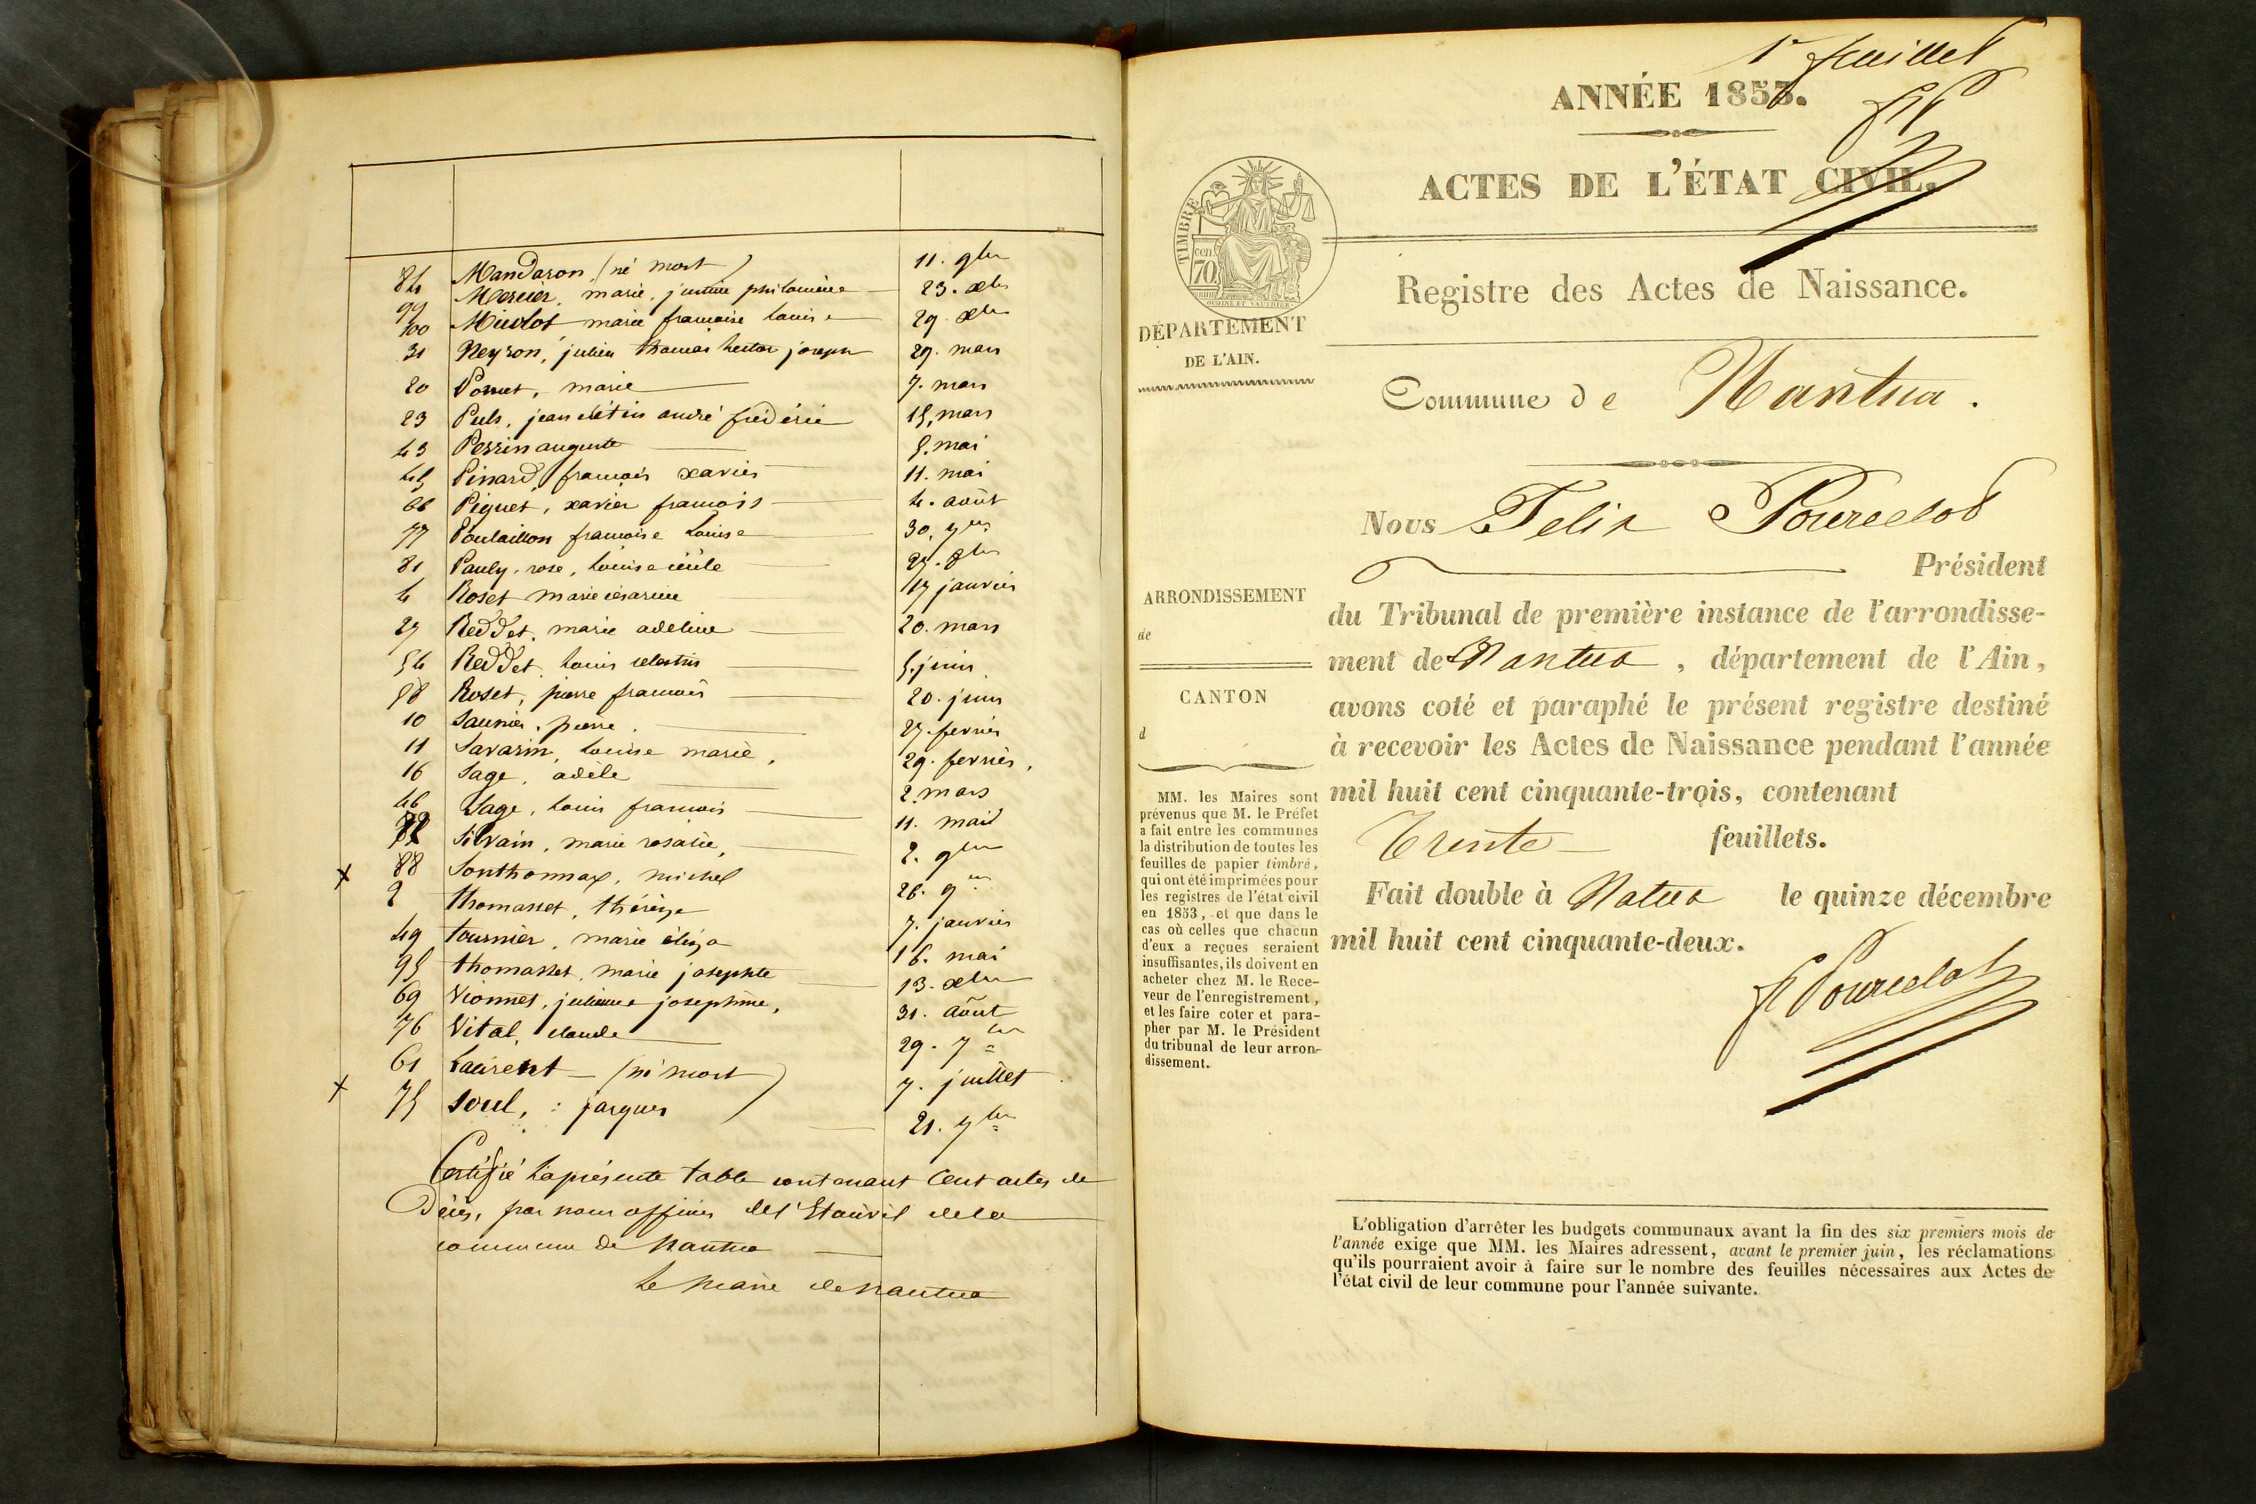 84 Mandaron (né mort) 11. 9bre
99 Mercier, marie, justine philomène 23. xbre
100 Micolot marie françoise louise 29. xbre
31 Neyron, julien thomas hector joseph 29. mars
20 Pomet, marie 7. mars
23 Puls, jean andré frédéric 15, mars
43 Perrin auguste 5. mai
45 Pinard, françois xavier 11. mai
66 Piquet, xavier françois 4. août
77 Poulaillon françoise louise 30. 7bre
81 Pauly. rose, louise 27. 8bre
4 Roset marie césarine 17 janvier
27 Reddet, marie adeline 20. mars
54 Reddet, louis celestin 5. juin
58 Roset, pierre françois 20. juin
10 Saunier. pierre. 27. fevrier
11 Savarin, louise marie, 29. fevrier,
16 Sage, adèle 2. mars
46 Sage, louis françois 11. mai
82 Silvain, marie rosalie, 2. 9bre
x 88 Sonthonnax, michel 26. 9bre
2 thomasset, thérèse 7. janvier
49 tournier, marie éliza 16. mai
95 thomasset, marie josephte 13. xbre
69 Vionnet, julienne josephine, 31. août
76 Vital, claude 29. 7bre
61 Laurent (né mort) 7. juillet
x 75 Soul, : jacques 21. 7bre
Certifié la présente table contenant Cent actes de
Décès, par nous officier de l'Etat civil de la
commune de Nantua
le Maire de Nantua
1er feuillet
ANNÉE 1853.
ACTES DE L'ÉTAT CIVIL.
TIMBRE
cen. 70
Registre des Actes de Naissance.
DÉPARTEMENT
DE L'AIN.
Commune de Nantua.
Nous Felix Pourcelot
Président
ARRONDISSEMENT
de
CANTON
d
du Tribunal de première instance de l'arrondisse-
ment de Nantua, département de l'Ain,
avons coté et paraphé le présent registre destiné
à recevoir les Actes de Naissance pendant l'année
mil huit cent cinquante-trois, contenant
Trente feuillets.
Fait double à Natua le quinze décembre
mil huit cent cinquante-deux.
F Pourcelot
MM. les Maires sont
prévenus que M. le Préfet
a fait entre les communes
la distribution de toutes les
feuilles de papier timbré,
qui ont été imprimées pour
les registres de l'état civil
en 1853, et que dans le
cas où celles que chacun
d'eux a reçues seraient
insuffisantes, ils doivent en
acheter chez M. le Rece-
veur de l'enregistrement,
et les faire coter et para-
pher par M. le Président
du tribunal de leur arron-
dissement.
L'obligation d'arrêter les budgets communaux avant la fin des six premiers mois de
l'année exige que MM. les Maires adressent, avant le premier juin, les réclamations
qu'ils pourraient avoir à faire sur le nombre des feuilles nécessaires aux Actes de
l'état civil de leur commune pour l'année suivante.